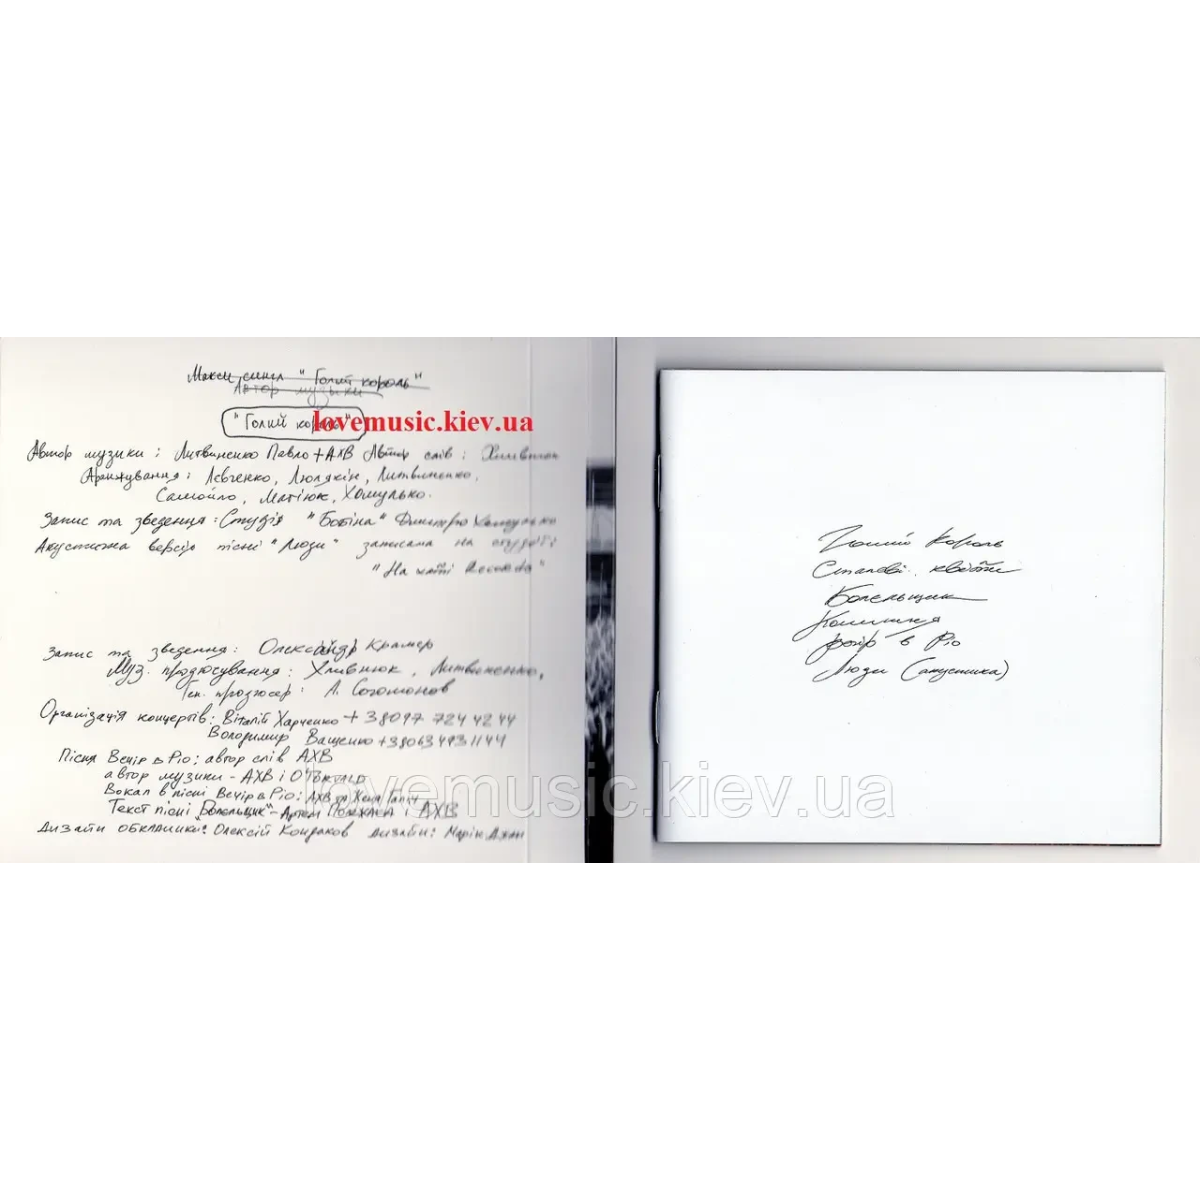 Макси сингл "Голий король"
Автор музыки
"Голий король"
lovemusic.kiev.ua
Автор музики: Литвиненко Павло + АХВ Автор слів: Хливнюк
Аранжування: Левченко, Люлякін, Литвиненко,
Самойло, Матіюк, Хомулько.
Запис та зведення: Студія "Бобіна" Дмитро Хомулько
Акустична версія пісні "Люди" записана на студії:
"На хаті Records"
Запис та зведення: Олександр Крамер
Муз. продюсування: Хливнюк, Литвиненко,
Ген. продюсер: А. Согомонов
Організація концертів: Віталій Харченко +38097 724 42 44
Володимир Ващенко +380634931144
Пісня Вечір в Ріо: автор слів АХВ
автор музики - АХВ і
Вокал в пісні Вечір в Ріо: АХВ та Кеша
Текст пісні "Болельщик" - Артем і АХВ
Дизайн обкладинки: Олексій Кондаков дизайн: Марін Джан
lovemusic.kiev.ua
Голий Король
Сталеві квіти
Болельщик
Колишня
в Ріо
Люди (акустика)